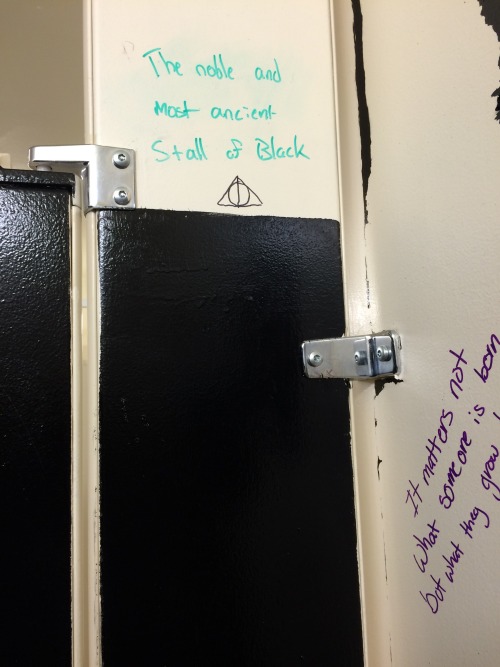 The noble and
most ancient
Stall of Black
It matters not
what someone is born
but what they grow